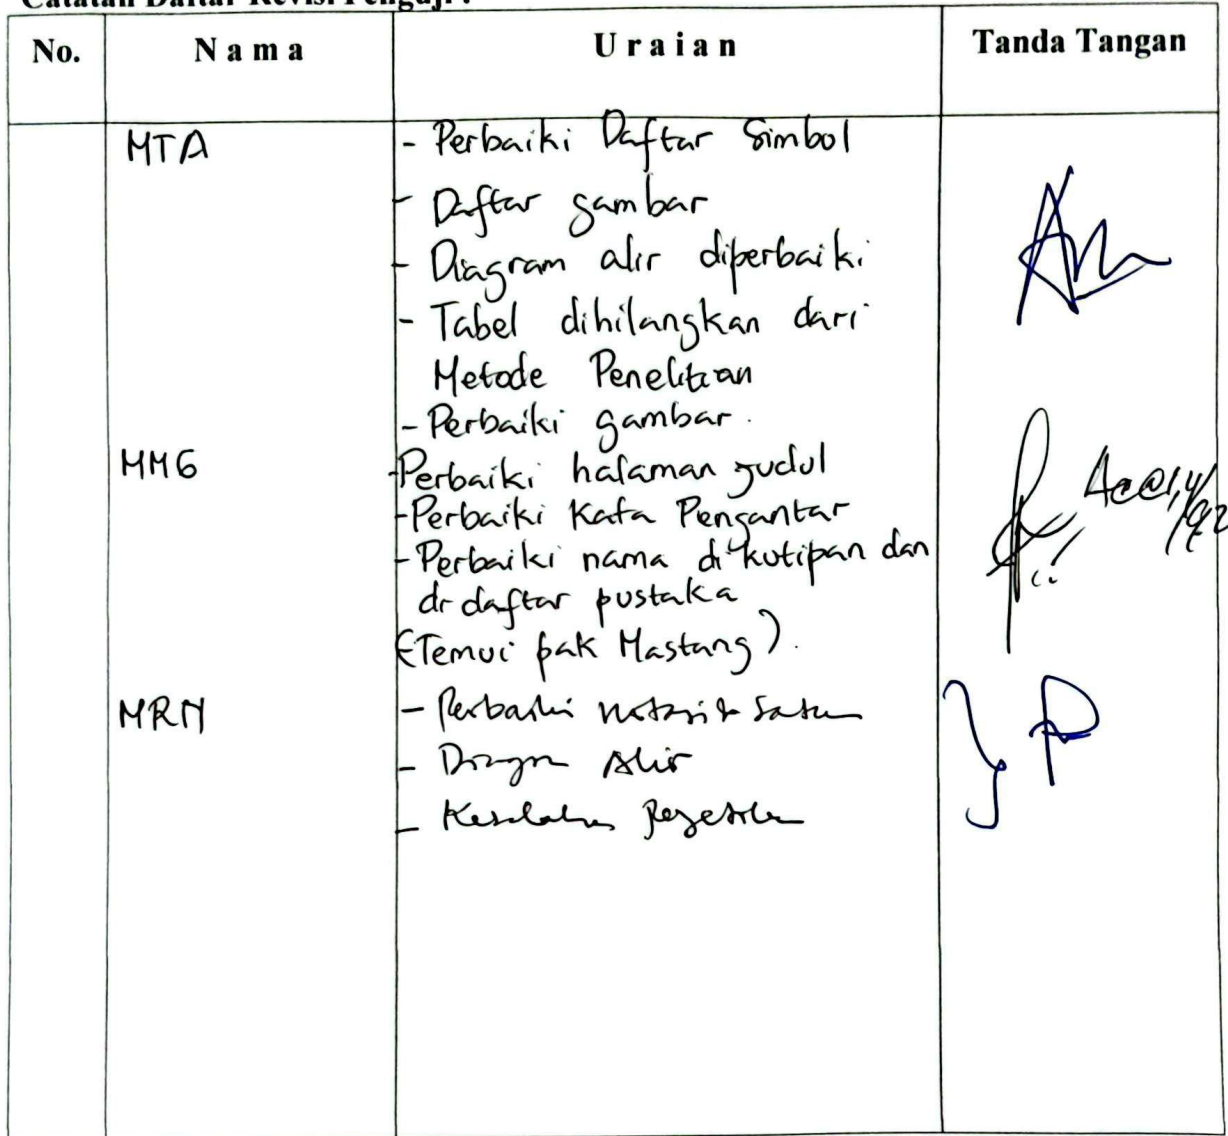 Catatan Daftar Revisi Penguji :
No.
Nama
Uraian
Tanda Tangan
MTA
- Perbaiki Daftar Simbol
- Daftar gambar
- Diagram alir diperbaiki
- Tabel dihilangkan dari
Metode Penelitian
- Perbaiki gambar.
MMG
-Perbaiki halaman judul
-Perbaiki Kata Pengantar
-Perbaiki nama di kutipan dan
di daftar pustaka
(Temui pak Mastang).
MRN
- Perbaiki notasi & satuan
- Diagram Alir
- Kesalahan Pengetikan